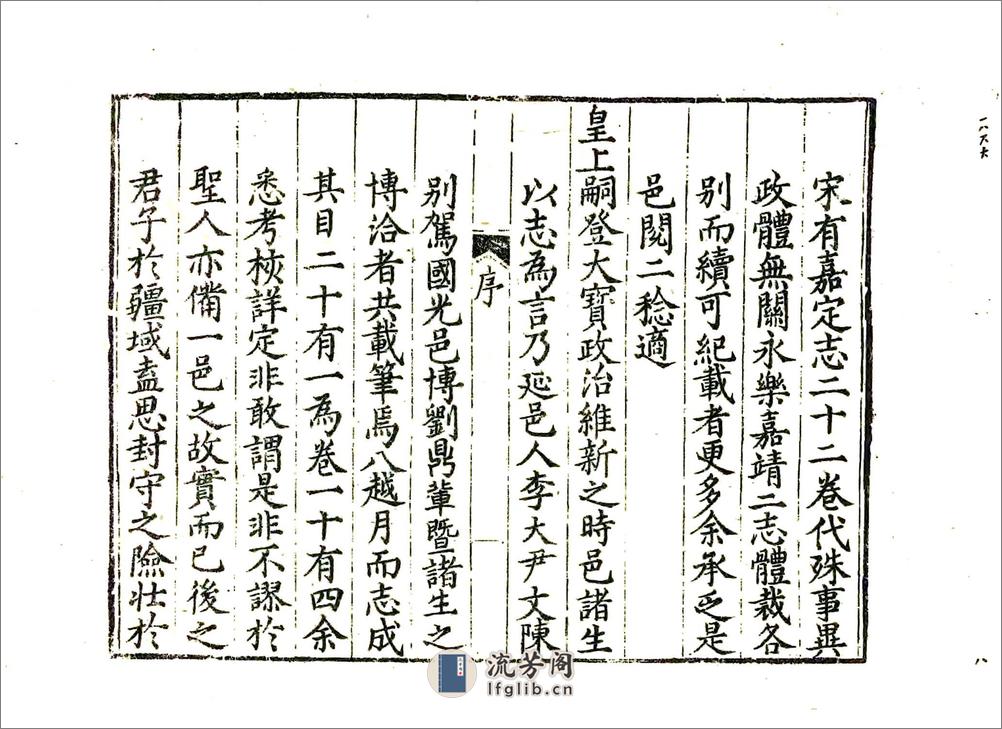 宋有嘉定志二十二卷代殊事異
政體無關永樂嘉靖二志體裁各
别而續可紀載者更多余承乏是
邑閱二稔適
皇上嗣登大寶政治維新之時邑諸生
以志為言乃延邑人李大尹文陳
序
别駕國光邑博劉鼎輩暨諸生之
博洽者共載筆焉八越月而志成
其目二十有一為卷一十有四余
悉考核詳定非敢謂是非不謬於
聖人亦備一邑之故實而已後之
君子於疆域盍思封守之險壯於
流芳阁
lfglib.cn